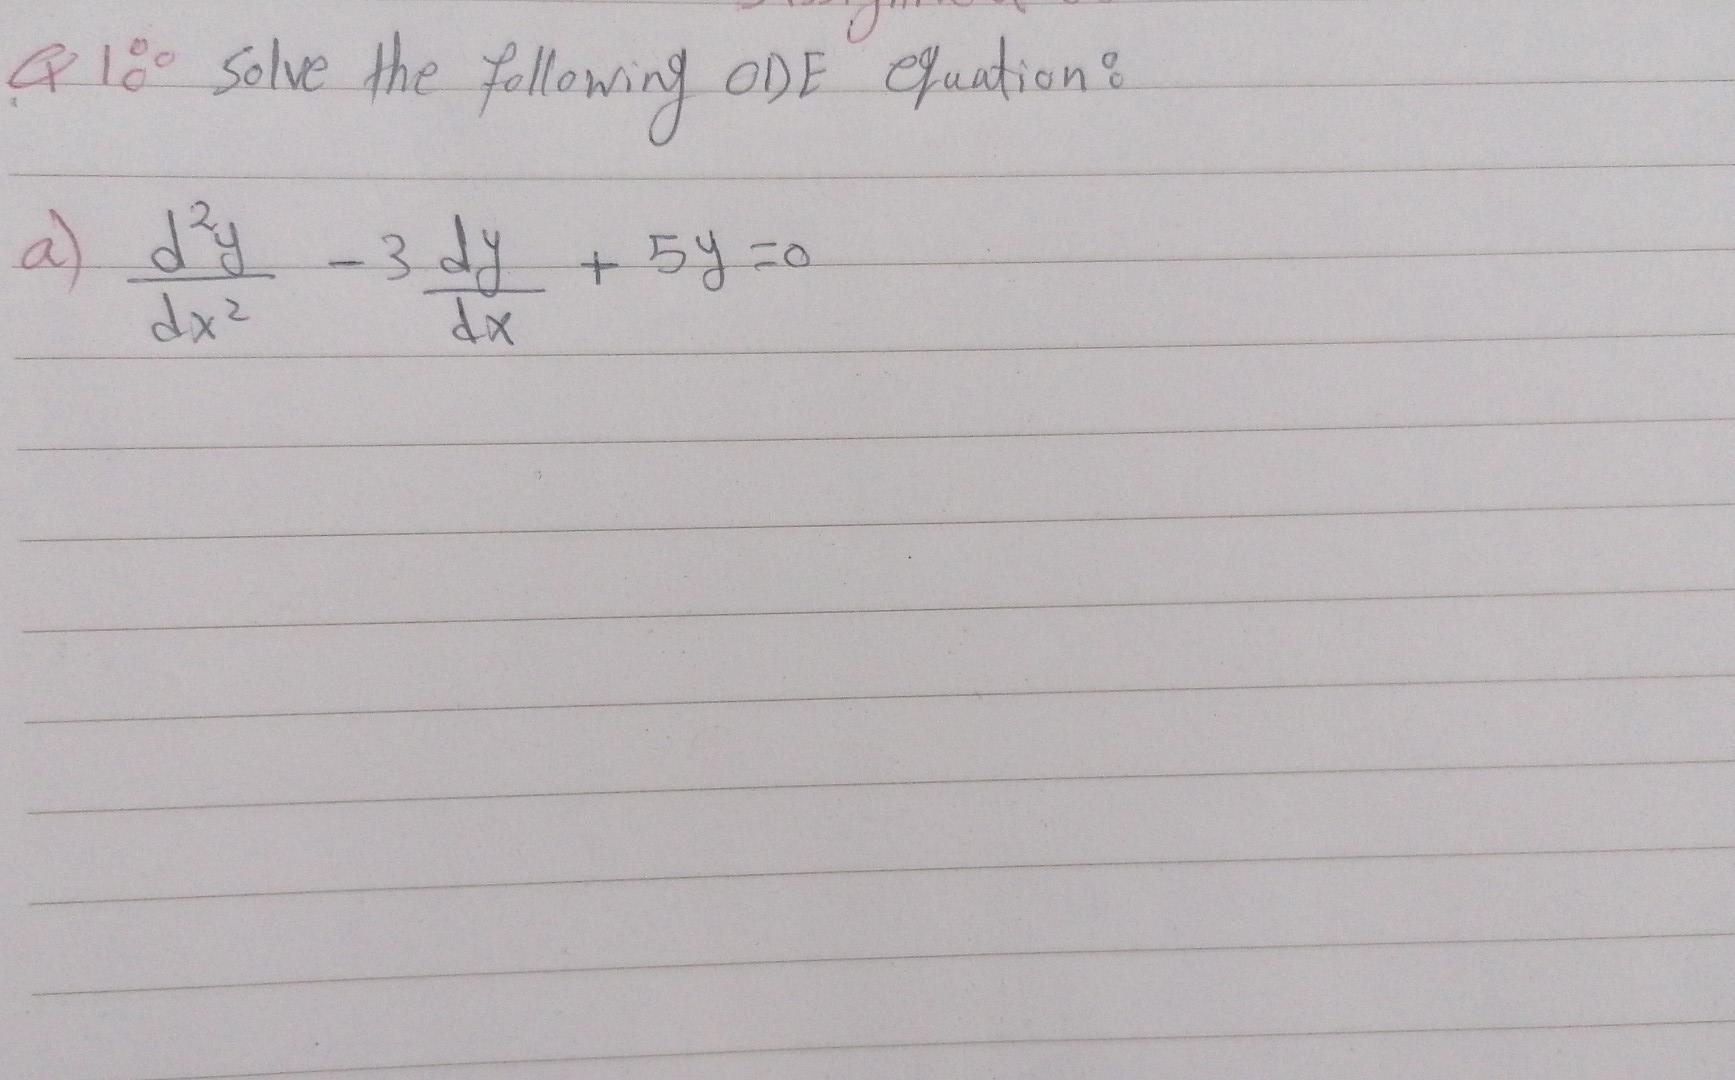 Q1: Solve the following ODE equation:
a) d²y/dx² - 3 dy/dx + 5y = 0